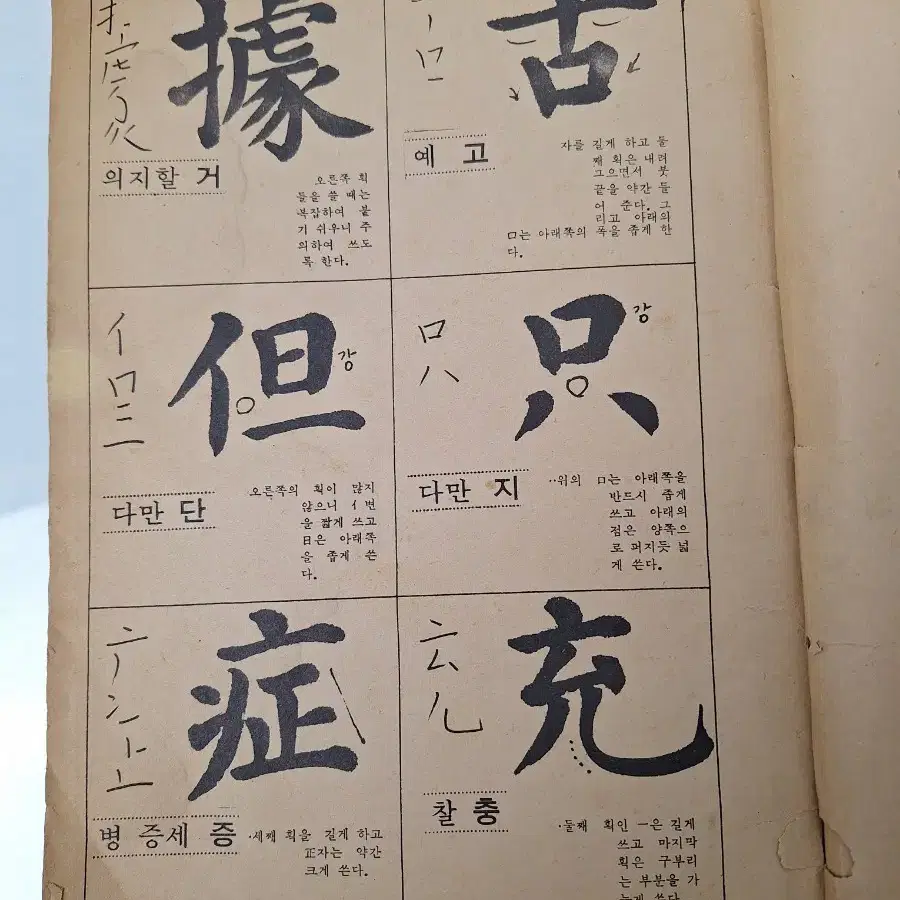 據
의지할 거
오른쪽 획
들을 쓸 때는
복잡하여 붙
기 쉬우니 주
의하여 쓰도
록 한다.
古
예 고
자를 길게 하고 둘
째 획은 내려
그으면서 붓
끝을 약간 들
어 준다. 그
리고 아래의
口는 아래쪽의 폭을 좁게 한
다.
但
강
다만 단
오른쪽의 획이 많지
않으니 亻변
을 짧게 쓰고
日은 아래쪽
을 좁게 쓴
다.
只
강
다만 지
··위의 口는 아래쪽을
반드시 좁게
쓰고 아래의
점은 양쪽으
로 퍼지듯 넓
게 쓴다.
症
병 증세 증
·세째 획을 길게 하고
正자는 약간
크게 쓴다.
充
찰 충
·둘째 획인 一은 길게
쓰고 마지막
획은 구부리
는 부분을 가
늘게 쓴다.